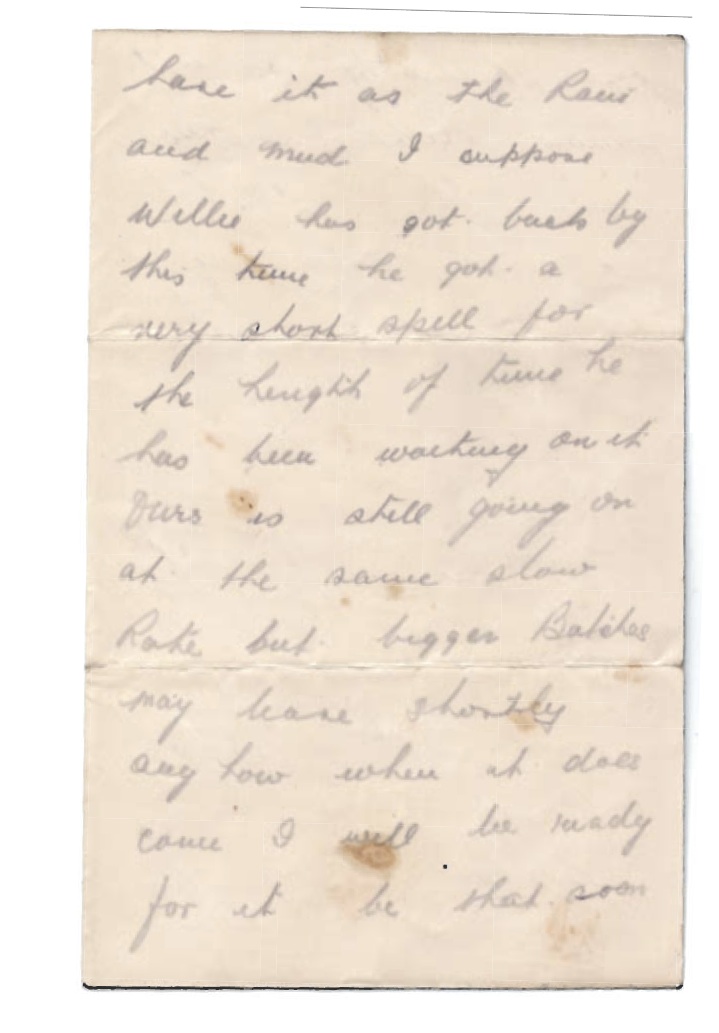 have it as the Rain
and mud. I suppose
Willie has got. back by
this time he got. a
very short spell for
the lenght of time he
has been waiting on it
Ours is still going on
at. the same slow
Rate but. bigger Batches
may leave shortly
any how when it does
come I will be ready
for it be that. soon